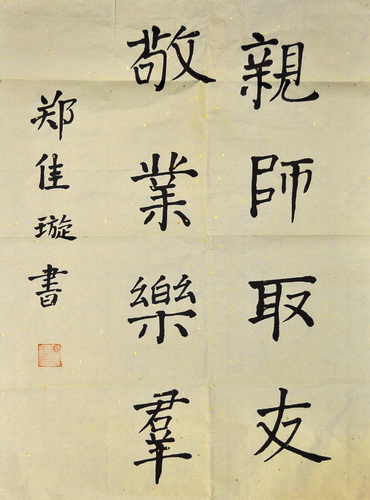 親師取友
敬業樂羣
郑佳璇書